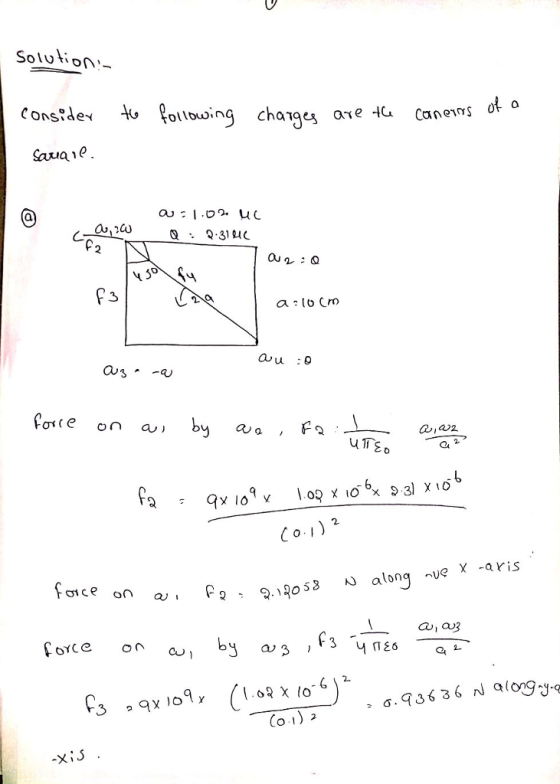 Solution:-
Consider the following charges are the corners of a
square.
(a)
q = 1.02 μC
Q = 2.31 μC
q1 = q
F2
q2 = Q
45°
F4
F3
√2 a
a = 10 cm
q4 = Q
q3 = -q
force on q1 by q2, F2 = 1/4πε0 q1q2/a²
f2 = 9×10⁹ × 1.02 × 10⁻⁶ × 2.31 × 10⁻⁶ / (0.1)²
force on q1 F2 = 2.12058 N along -ve x-axis
force on q1 by q3, F3 = 1/4πε0 q1q3/a²
F3 = 9×10⁹ × (1.02 × 10⁻⁶)² / (0.1)² = 0.93636 N along -y-a
-xis.